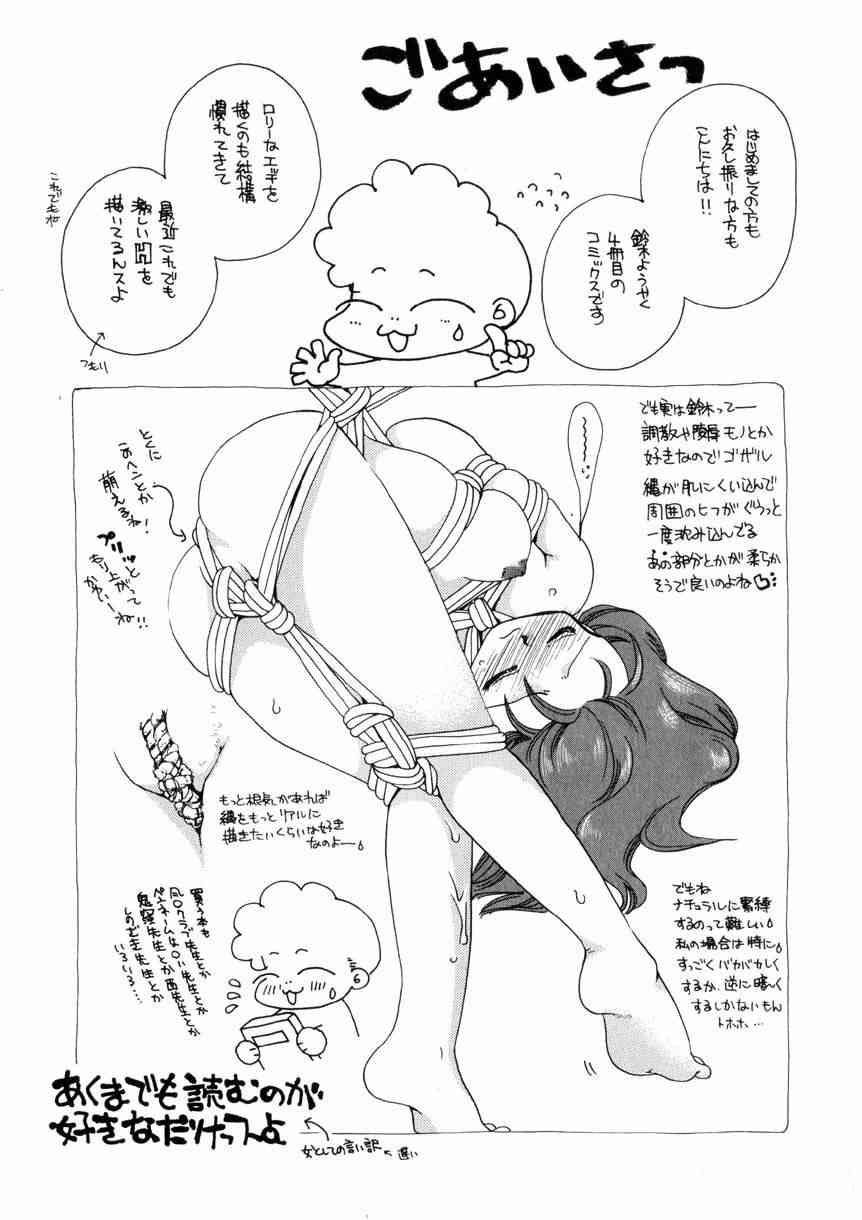 ごあいさつ
はじめましての方も
お久し振りな方も
こんにちは!!
鈴木ようやく
4冊目の
コミックスです
ロリーなエチを
描くのも結構
慣れてきて
最近これでも
激しい図を
描いてるんスよ
これでもね
つもり
でも実は鈴木って—
調教や陵辱モノとか
好きなのでゴザル
縄が肌にくい込んで
周囲のヒフがぐうっと
一度沈み込んでる
あの部分とかが柔らか
そうで良いのよね
とくに
このヘンとか
萌えるね!
プリッと
もり上がって
かわいーね!!
もっと根気があれば
縄をもっとリアルに
描きたいくらいは好き
なのよー
でもね
ナチュラルに緊縛
するのって難しい
私の場合は特に
すっごくバカバカしく
するか、逆に暗〜く
するしかないもん
トホホ…
買う本も
ペンネームは〇い先生とか
鬼窪先生とか西先生とか
しのざき先生とか
いろいろ…
あくまでも読むのが
好きなだけっスよ
女としての言い訳
違い